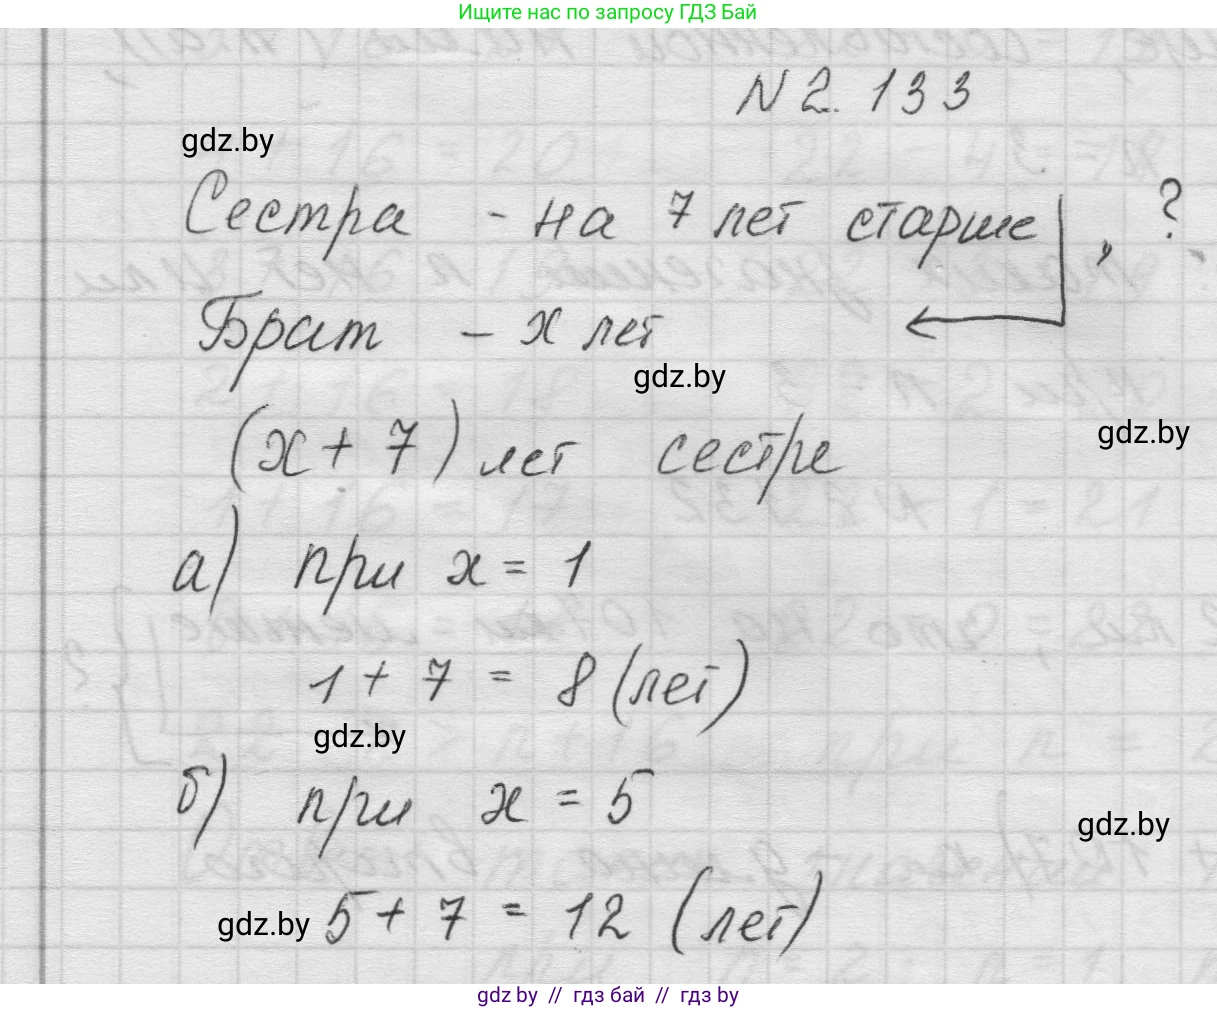 Ищите нас по запросу ГДЗ Бай
N 2.133
gdz.by
Сестра - на 7 лет старше, ?
Брат - х лет
gdz.by
gdz.by
(х + 7) лет сестре
а) при х = 1
1 + 7 = 8 (лет)
gdz.by
б) при х = 5
gdz.by
gdz.by
5 + 7 = 12 (лет)
gdz.by // гдз бай // gdz.by